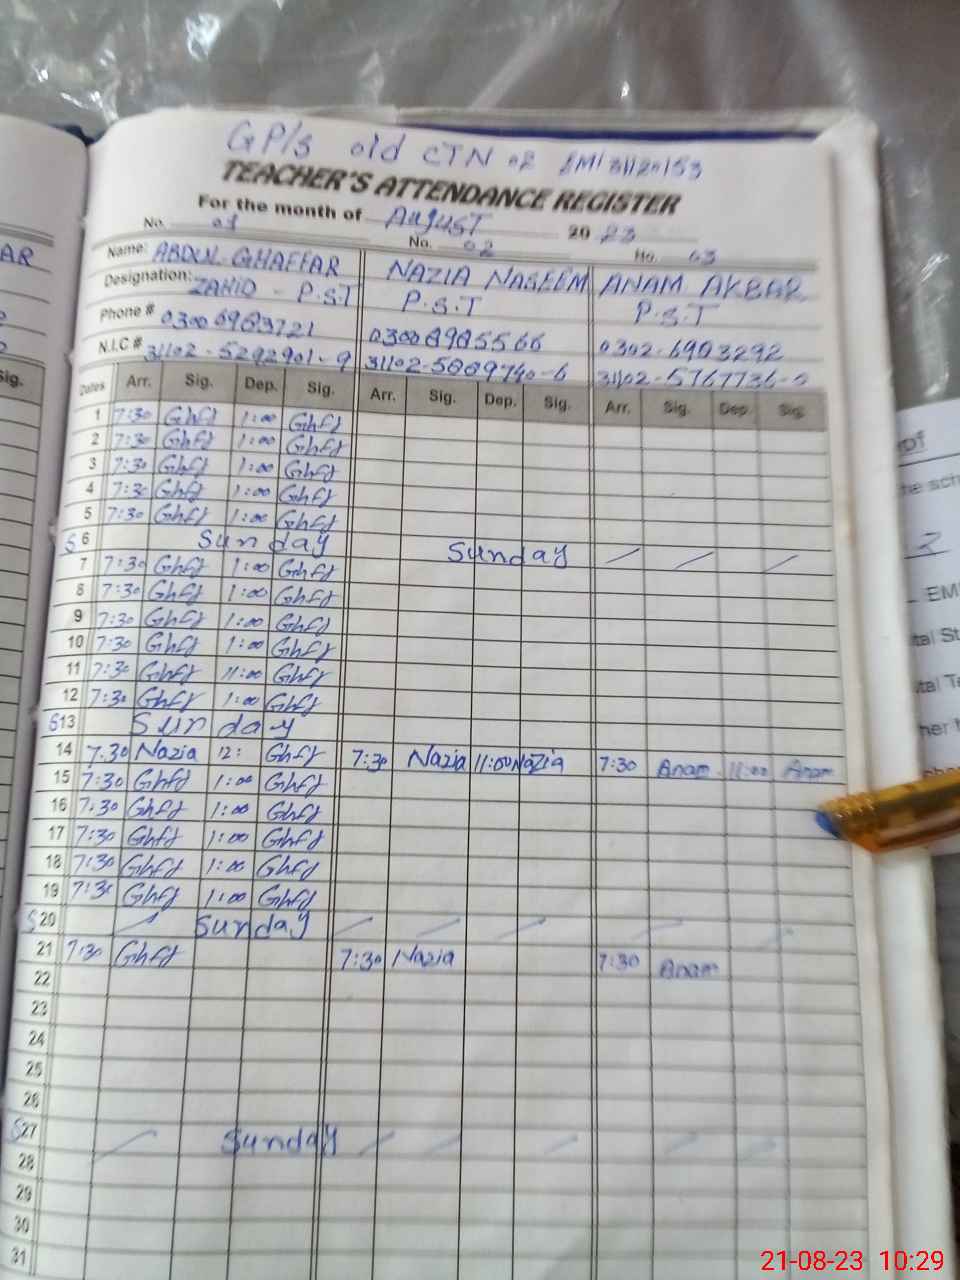 GP/s old CTN 02 EMI 31120153
TEACHER'S ATTENDANCE REGISTER
For the month of August 2023
No. 01 No. 02 No. 03
Name: ABDUL GHAFFAR NAZIA NASEEM ANAM AKBAR
Designation: ZAHID - P.S.T P.S.T P.S.T
Phone #
N.I.C #
Dates Arr. Sig. Dep. Sig. Arr. Sig. Dep. Sig. Arr. Sig. Dep. Sig.
1 7:30 Ghff 1:00 Ghff
2 7:30 Ghff 1:00 Ghff
3 7:30 Ghff 1:00 Ghff
4 7:30 Ghff 1:00 Ghff
5 7:30 Ghff 1:00 Ghff
S 6 Sunday Sunday
7 7:30 Ghff 1:00 Ghff
8 7:30 Ghff 1:00 Ghff
9 7:30 Ghff 1:00 Ghff
10 7:30 Ghff 1:00 Ghff
11 7:30 Ghff 11:00 Ghff
12 7:30 Ghff 1:00 Ghff
S 13 Sunday
14 7.30 Nazia 12: Ghff 7:30 Nazia 11:00 Nazia 7:30 Anam 11:00 Anam
15 7:30 Ghff 1:00 Ghff
16 7:30 Ghff 1:00 Ghff
17 7:30 Ghff 1:00 Ghff
18 7:30 Ghff 1:00 Ghff
19 7:30 Ghff 1:00 Ghff
S 20 Sunday
21 7:30 Ghff 7:30 Nazia 7:30 Anam
22
23
24
25
26
S 27 Sunday
28
29
30
31
21-08-23 10:29